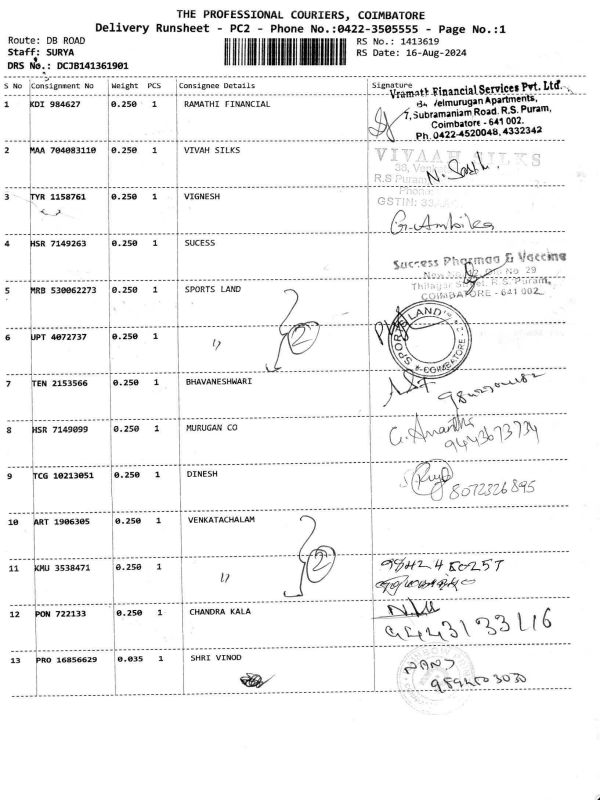 THE PROFESSIONAL COURIERS, COIMBATORE
Delivery Runsheet - PC2 - Phone No.:0422-3505555 - Page No.:1
Route: DB ROAD RS No.: 1413619
Staff: SURYA RS Date: 16-Aug-2024
DRS No.: DCJB141361901
S No Consignment No Weight PCS Consignee Details Signature
1 KDI 984627 0.250 1 RAMATHI FINANCIAL
Vramath Financial Services Pvt. Ltd.
Velmurugan Apartments,
7, Subramaniam Road. R.S. Puram,
Coimbatore - 641 002.
Ph. 0422-4520048, 4332342
2 MAA 704083110 0.250 1 VIVAH SILKS
VIVAAH SILKS
R.S Puram
Phone:
GSTIN: 33
3 TYR 1158761 0.250 1 VIGNESH
G. Ambika
4 HSR 7149263 0.250 1 SUCESS
Success Pharmaa & Vaccine
No. 29
R.S. Puram,
COIMBATORE - 641 002
5 MRB 530062273 0.250 1 SPORTS LAND
SPORTS LAND COIMBATORE
6 UPT 4072737 0.250 1 " 2
7 TEN 2153566 0.250 1 BHAVANESHWARI
8 HSR 7149099 0.250 1 MURUGAN CO
G. Anantha
9443673734
9 TCG 10213051 0.250 1 DINESH
8072326895
10 ART 1906305 0.250 1 VENKATACHALAM
11 KMU 3538471 0.250 1 " 2
12 PON 722133 0.250 1 CHANDRA KALA
9443133116
13 PRO 16856629 0.035 1 SHRI VINOD